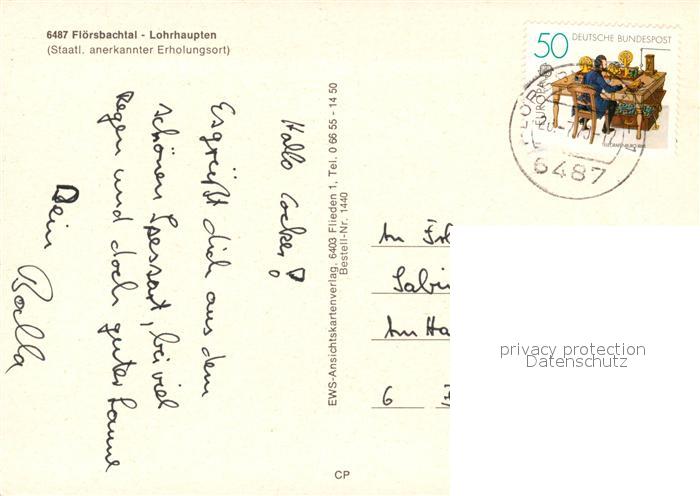 6487 Flörsbachtal - Lohrhaupten
(Staatl. anerkannter Erholungsort)
Hallo
Es grüßt dich aus dem
schönen Spessart, bei viel
Regen und doch guter Laune
Dein
EWS-Ansichtskartenverlag, 6403 Flieden 1, Tel. 0 66 55 - 14 50
Bestell-Nr. 1440
50 DEUTSCHE BUNDESPOST
EUROPA
6487
An
Sabi
Am Ha
6
privacy protection
Datenschutz
CP